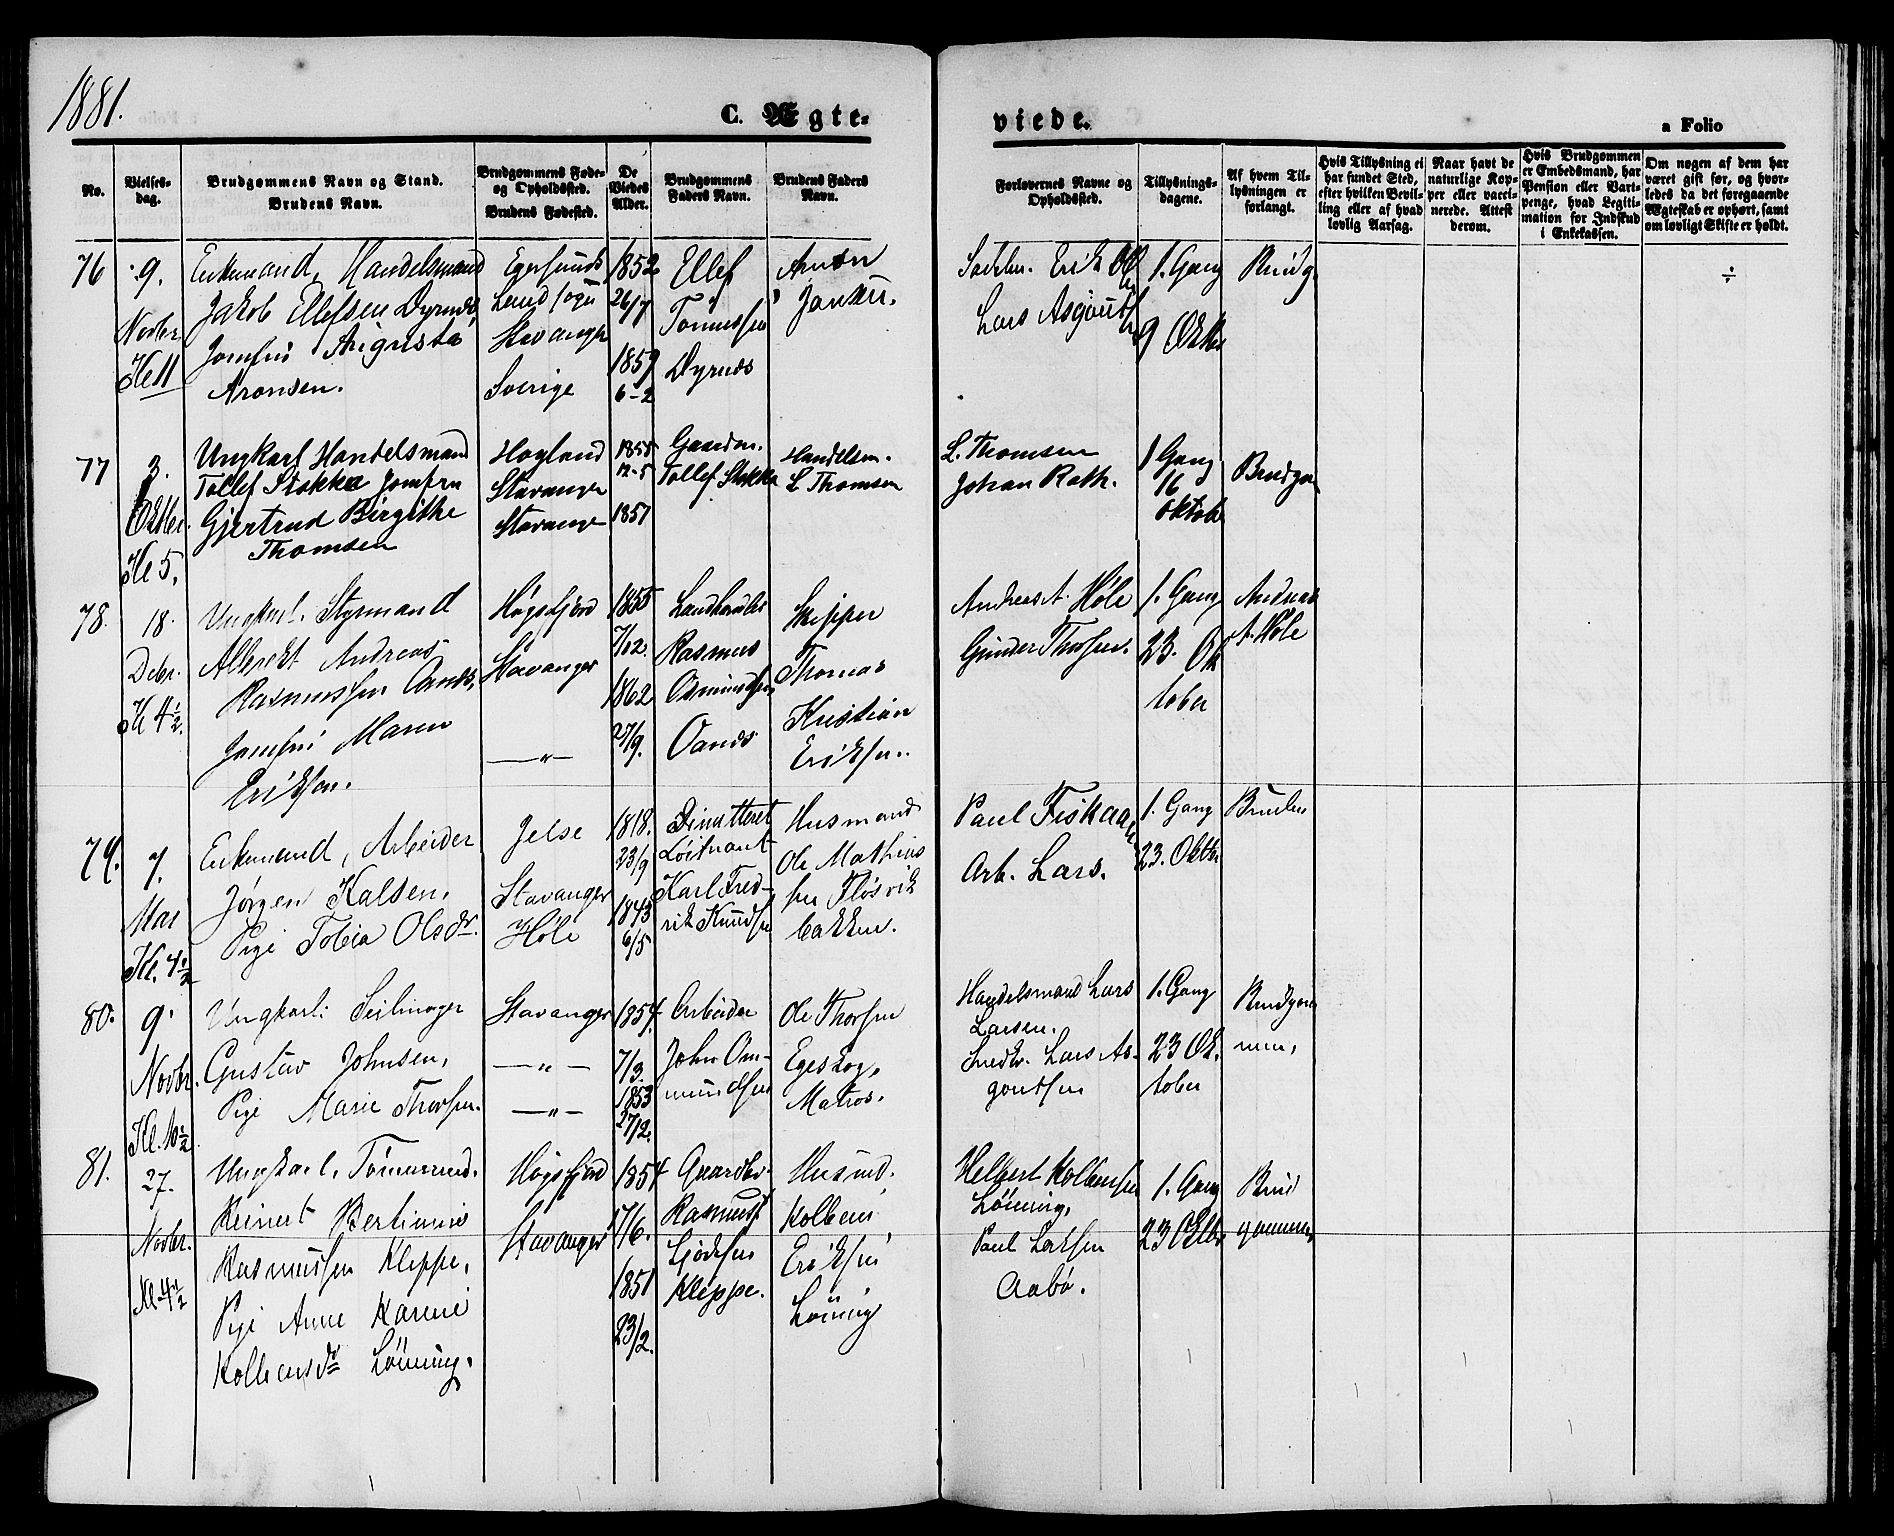 1881.
C. Ægte-
viede.
a Folio
No.
Vielses-
dag.
Brudgommens Navn og Stand.
Brudens Navn.
Brudgommens Føde-
og Opholdssted.
Brudens Fødested.
De
Viedes
Alder.
Brudgommens
Faders Navn.
Brudens Faders
Navn.
Forlovernes Navne og
Opholdssted.
Tillysnings-
dagene.
Af hvem Til-
lysningen er
forlangt.
Hvis Tillysning ei
har fundet Sted,
efter hvilken Bevil-
ling eller af hvad
lovlig Aarsag.
Naar havt de
naturlige Kop-
per eller vacci-
nerede. Attest
derom.
Hvis Brudgommen
er Embedsmand, har
Pension eller Vart-
penge, hvad Legiti-
mation for Indskud
i Enkekassen.
Om nogen af dem har
været gift før, og hvor-
ledes da det foregaaende
Ægteskab er ophørt, samt
om lovligt Skifte er holdt.
76
9.
Novbr.
Kl 11
Enkemand, Handelsmand
Jakob Ellefsen Dyrnes,
Jomfru Augusta
Aronsen.
Egersunds
Landsogn
Stavanger
Sverige
1852
26/7
1859
6-2
Ellef
Tønnessen
Dyrnes
Aron
Jansen.
Erik
Lars Asgautsen
1. Gang
9 Oktbr
Brudg.
÷
77
3.
Oktbr.
Kl 5.
Ungkarl Handelsmand
Tollef Stokka Jomfru
Gjertrud Birgithe
Thomsen
Høyland
Stavanger
Stavanger
1855
12-5
1851
Gaardm.
Tollef Stokka
Handelsm.
L Thomsen
L. Thomsen
Johan Rath.
1 Gang
16
Oktober
Brudgom
78.
18.
Debr.
Kl 4½.
Ungkarl. Styrmand
Albrekt Andreas
Rasmussen Oanes,
Jomfru Maren
Eriksen.
Høgsfjord
Stavanger
—"—
1855
7/02.
1862
27/9.
Landhandler
Rasmus
Osmundsen
Oanes
Skipper
Thomas
Kristian
Eriksen.
Andreas A. Høle
Gunder Thorsen.
1. Gang
23. Ok
tober
Andreas
A. Høle
79.
7.
Mai
Kl. 4½
Enkemand, Arbeider
Jørgen Kalsen,
Pige Tobia Olsdr.
Jelse
Stavanger
Høle
1818.
23/9
1843
6/5
Dimitteret
Løitnant
Karl Fred-
rik Knudsen
Husmand
Ole Mathias
sen Fløsvik
bakken.
Paul Fiskaa
Arb. Lars.
1. Gang
23. Oktbr
Bruden
80.
9.
Novbr.
Kl. 10½
Ungkarl: Seilmager
Gustav Johnsen,
Pige Marie Thorsen.
Stavanger
—"—
—"—
1857.
7/3.
1853
27/2.
Arbeider
John Om-
mundsen
Ole Thorsen
Egeskog,
Matros.
Handelsmand Lars
Larsen.
Snedkr. Lars As-
gautsen
1. Gang
23 Ok.
tober
Brudgom
men,
81.
27.
Novbr.
Kl 4½
Ungkarl, Tømmermd.
Reinert Bertinius
Rasmussen Kleppe,
Pige Anne Karine
Kolbensdr Lønning,
Høgsfjord
Stavanger
1854
17/6.
1851
23/2.
Gaardbr.
Rasmus
Gjødesen
Kleppe.
Husmd.
Kolben
Eriksen
Lønning
Helbert Kolbensen
Lønning,
Paul Larsen
Aabø.
1. Gang
23 Oktbr
Brud
gommen